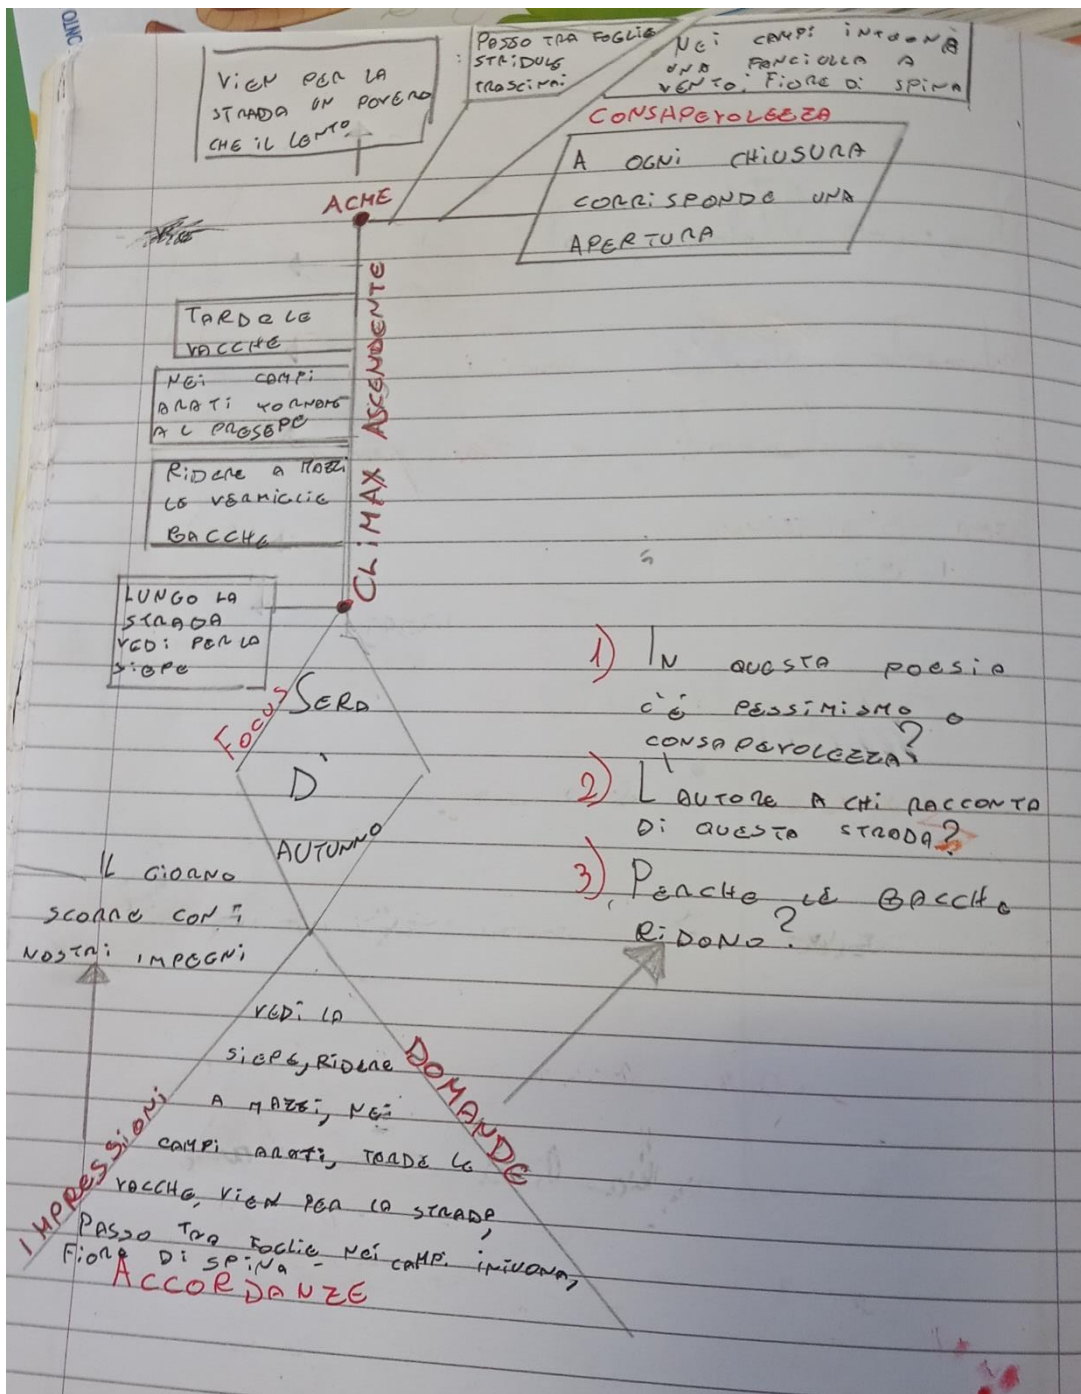 VIEN PER LA
STRADA UN POVERO
CHE IL LENTO
PASSO TRA FOGLIE
STRIDULE
TRASCINA:
NEI CAMPI INTUONA
UNA FANCIULLA A
VENTO: FIORE DI SPINA
CONSAPEVOLEZZA
A OGNI CHIUSURA
CORRISPONDE UNA
APERTURA
ACME
CLIMAX ASCENDENTE
TARDE LE
VACCHE
NEI CAMPI
ARATI TORNANO
AL PRESEPE
RIDERE A MAZZI
LE VERMIGLIE
BACCHE
LUNGO LA
STRADA
VEDI PER LA
SIEPE
FOCUS
SERA
D'
AUTUNNO
1) IN QUESTA POESIA
C'È PESSIMISMO O
CONSAPEVOLEZZA?
2) L'AUTORE A CHI RACCONTA
DI QUESTA STRADA?
3) PERCHE LE BACCHE
RIDONO?
IL GIORNO
SCORRE CON I
NOSTRI IMPEGNI
IMPRESSIONI
DOMANDE
VEDI LA
SIEPE, RIDERE
A MAZZI, NEI
CAMPI ARATI, TARDE LE
VACCHE, VIEN PER LA STRADA,
PASSO TRA FOGLIE NEI CAMPI
FIORE DI SPINA
ACCORDANZE